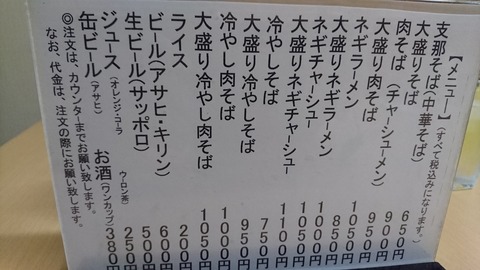 【メニュー】(すべて税込みになります。)
支那そば(中華そば) 650円
大盛りそば 900円
肉そば(チャーシューメン) 950円
大盛り肉そば 1050円
ネギラーメン 850円
大盛りネギラーメン 1000円
ネギチャーシュー 1000円
大盛りネギチャーシュー 1100円
冷やしそば 750円
大盛り冷やしそば 950円
冷やし肉そば 1000円
大盛り冷やし肉そば 1050円
ライス 200円
ビール(アサヒ・キリン) 600円
生ビール(サッポロ) 500円
ジュース(オレンジ・コーラ ウーロン茶) 250円
缶ビール(アサヒ) お酒(ワンカップ) 380円
◎注文は、カウンターまでお願い致します。
なお、代金は、注文の際にお願い致します。